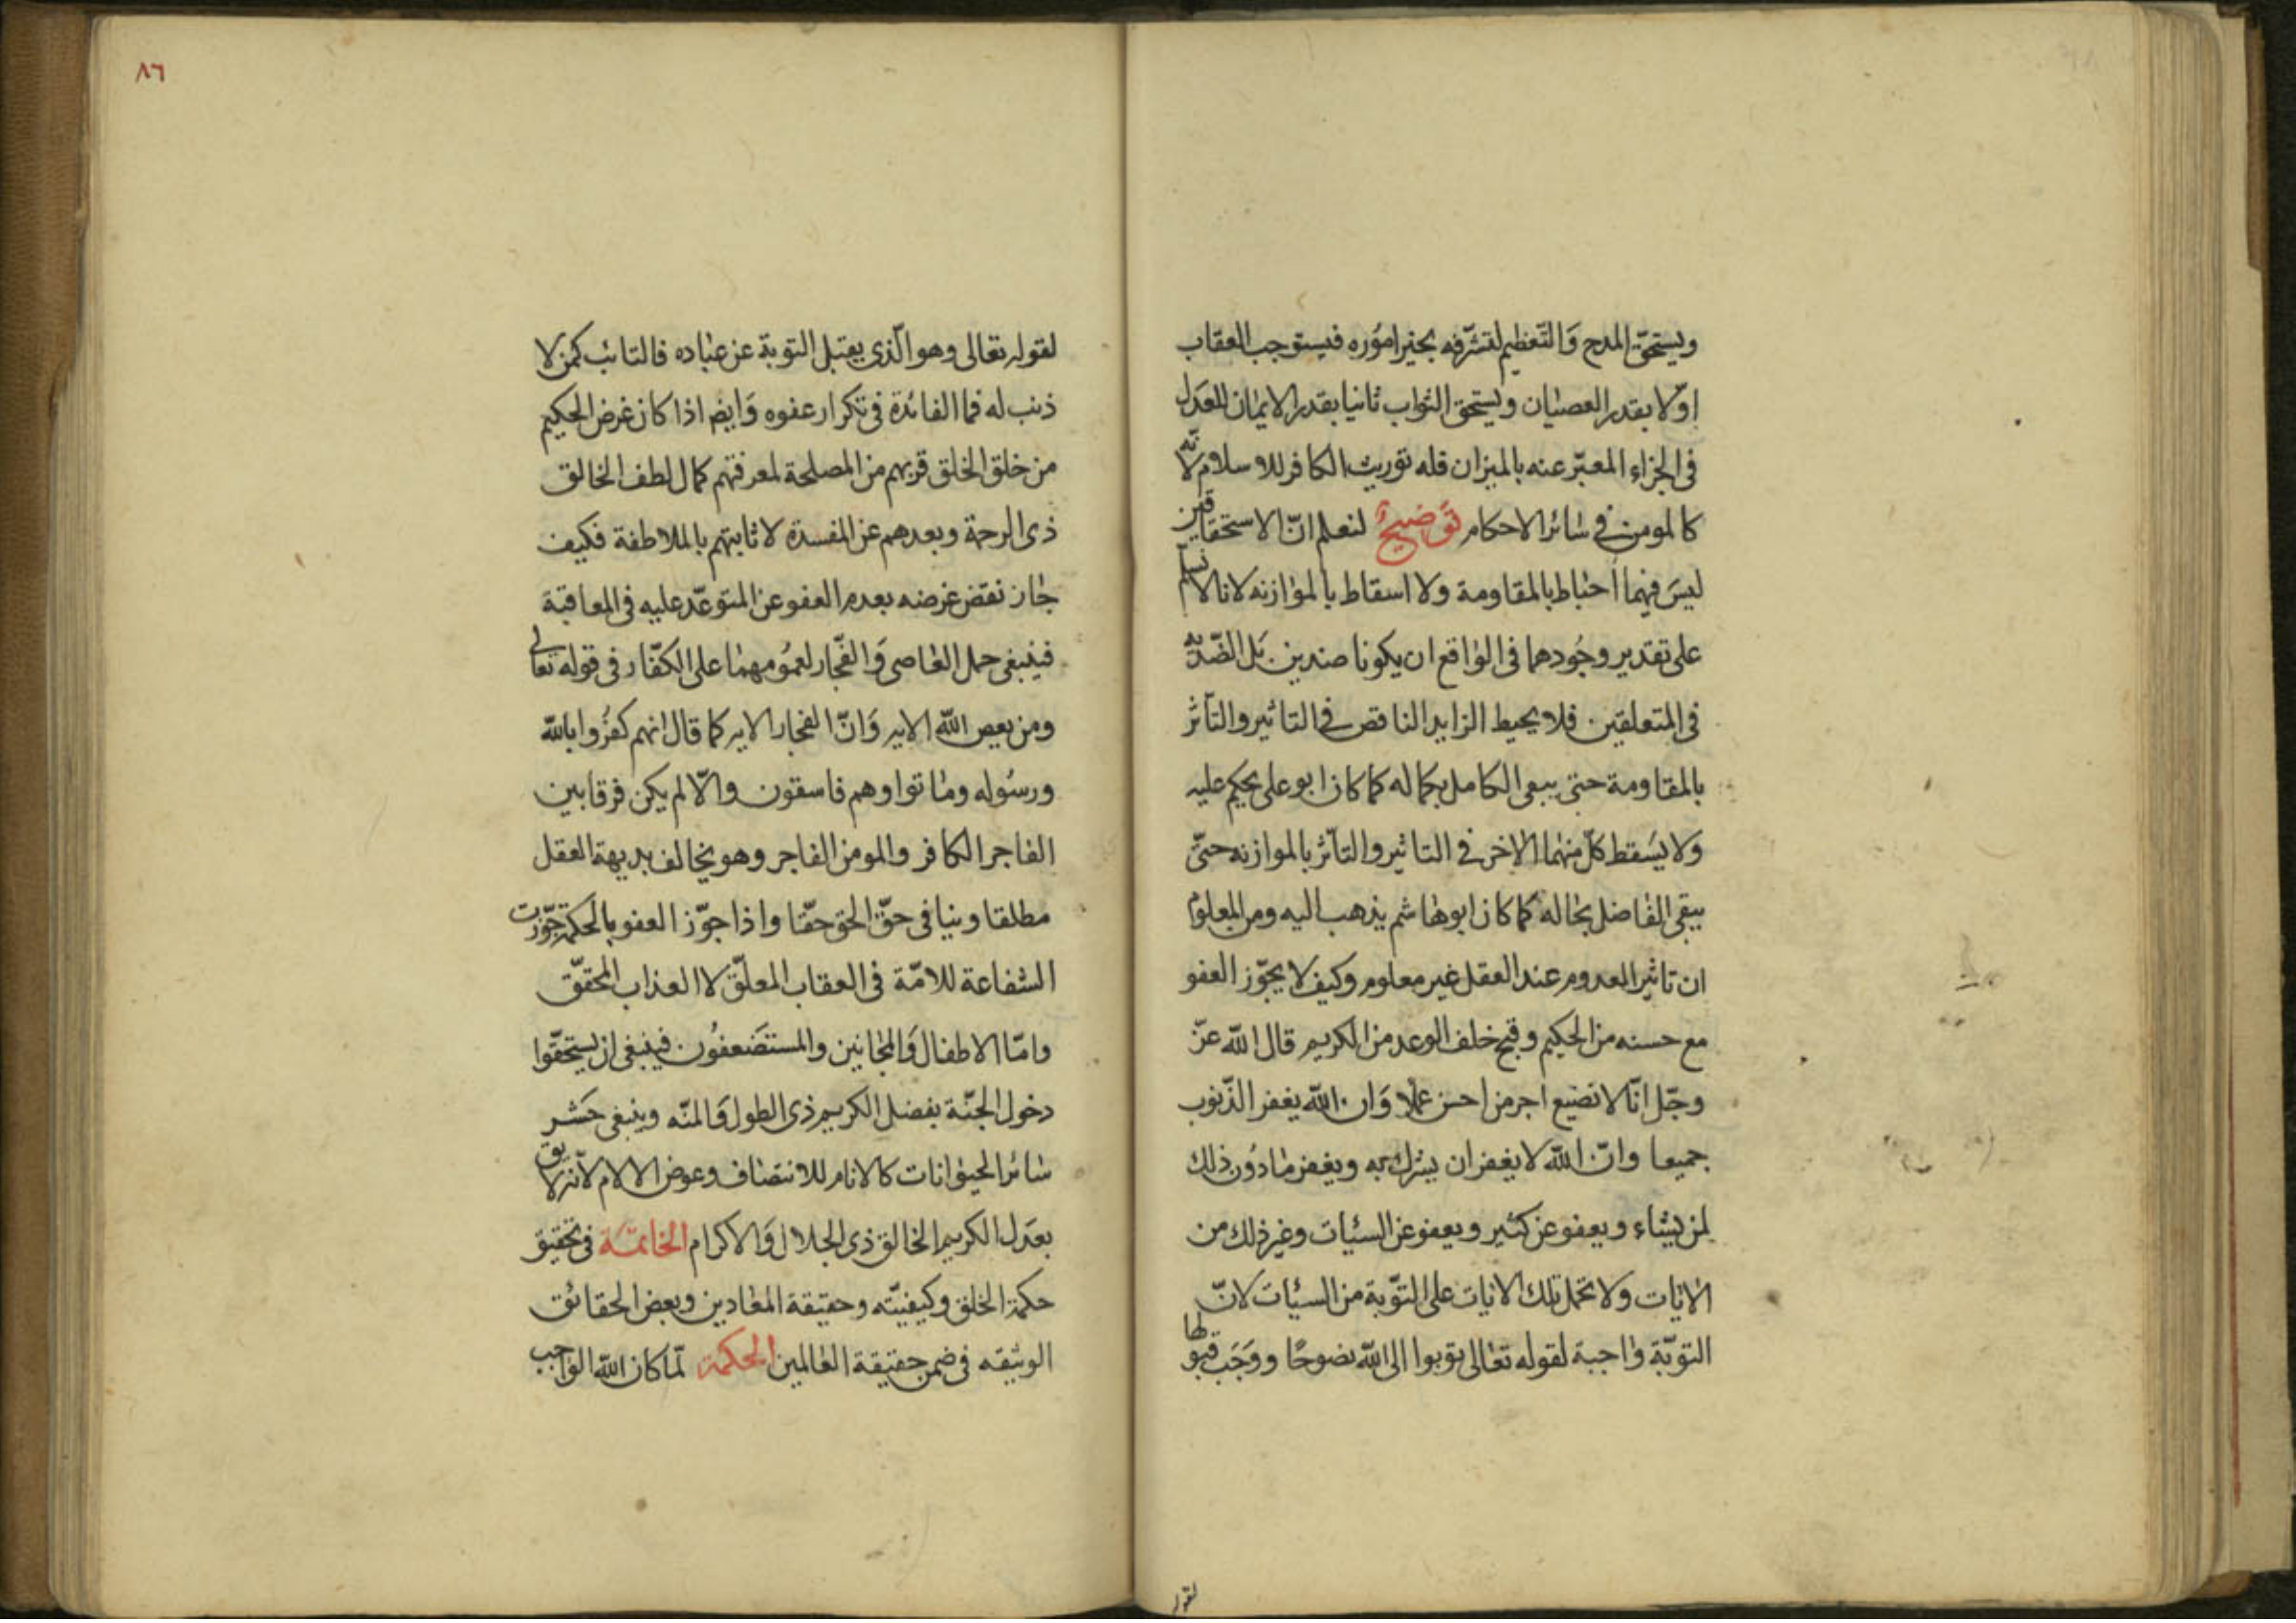 ويستحقّ المدح وَالتّعظيم لتشرّفه بخير امؤره فيستوجب العقاب
اوّلا بقدر العصيان ويستحق الثواب ثانيا بقدر الايمان للعدَل
فى الجزاء المعبّر عنه بالميزان فله توريث الكافر للاسلام لانّه
كالمومن فى سائر الاحكام توَضيحٌ لنعلم انّ الاستحقاقين
ليسَ فيهما احباط بالمقاومة ولا اسقاط بالموازنه لانا لا نسلم
على تقدير وجُودهما فى الواقع ان يكونا ضدين بَل الضّديه
فى المتعلقين فلا يحيط الزايد الناقص فى التاثير والتأثر
بالمقاومة حتى يبقى الكامل بكماله كما كان ابو على يحكم عليه
ولا يسَقط كلّ منهما الاخر فى التاثير والتأثر بالموازنه حتىّ
يبقى الفاضل بحاله كما كان ابوهاشم يذهب اليه ومن المعلوم
ان تاثير المعدوم عند العقل غير معلوم وكيف لا يجوّز العفو
مع حسنه من الحكيم وقبح خلف الوعد من الكريم قال الله عزّ
وجّل انّا لا نضيع اجر من احسن عملا وَان الله يغفر الذّنوب
جميعا وانّ الله لا يغفر ان يشرك به ويغفر ما دوُن ذلك
لمن يشاء ويعفو عن كثير ويعفو عن السئيات وغير ذلك من
الايات ولا تحمل تلك الايات على التوّبة من السيئات لانّ
التوبّة واجبة لقوله تعالى توبوا الى الله نضوحًا ووَجَب قبولها
لقوله
٨٦
لقوله تعالى وهو الّذى يقبل التوبة عن عباده فالتائب كمن لا
ذنب له فما الفائدة فى تكرار عفوه وَايضا اذا كان غرض الحكيم
من خلق الخلق قربهم من المصلحة لمعرفتهم كمال لطف الخالق
ذى الرحمة وبعدهم عن المفسدة لاثابتهم بالملاطفة فكيف
جاز نقض غرضه بعدم العفو عن المتوعّد عليه فى المعاقبة
فينبغى حمل العاصى وَالفّجار لعموُمهما على الكفّار فى قوله تعالى
ومن يعص الله الايه وَانّ الفجار الايه كما قال انهم كفرُوا بالله
ورسُوله وماتوا وهم فاسقون والّا لم يكن فرقا بين
الفاجر الكافر والمومن الفاجر وهو يخالف بديهة العقل
مطلقا وينافى حقّ الحق حقّا واذا جوّز العفو بالحكمة جوّزت
الشفاعة للامّة فى العقاب المعلّق لا العذاب المحقّق
وامّا الاطفال وَالمجانين والمستضَعفوُن فينبغى ان يستحقّوا
دخول الجنّة بفضل الكريم ذى الطول وَالمنّه وينبغى حَشر
سائر الحيوانات كالانام للانتصاف وعوض الالام لانّه لا يليق
بعدَل الكريم الخالق ذى الجلال وَالاكرام الخاتمّة فى تحقيق
حكمة الخلق وكيفيّته وحقيقة المعادين وبعض الحقائق
الوثيقه فى ضمن حقيقة العالمين الحكمة لمّا كان الله الواجب